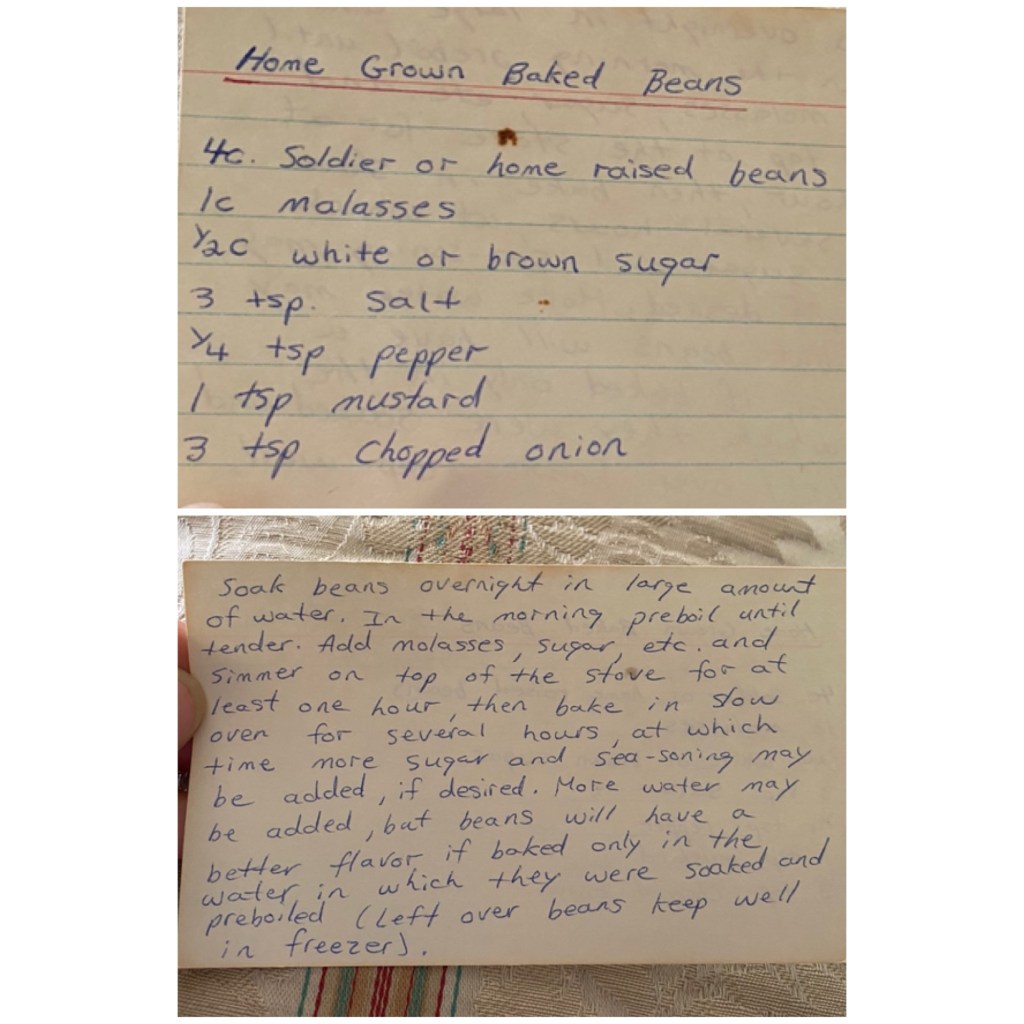 Home Grown Baked Beans
4c. Soldier or home raised beans
1c malasses
1/2c white or brown sugar
3 tsp. salt
1/4 tsp pepper
1 tsp mustard
3 tsp chopped onion
Soak beans overnight in large amount
of water. In the morning preboil until
tender. Add molasses, sugar, etc. and
simmer on top of the stove for at
least one hour, then bake in slow
oven for several hours, at which
time more sugar and sea-soning may
be added, if desired. More water may
be added, but beans will have a
better flavor if baked only in the
water in which they were soaked and
preboiled (Left over beans keep well
in freezer).